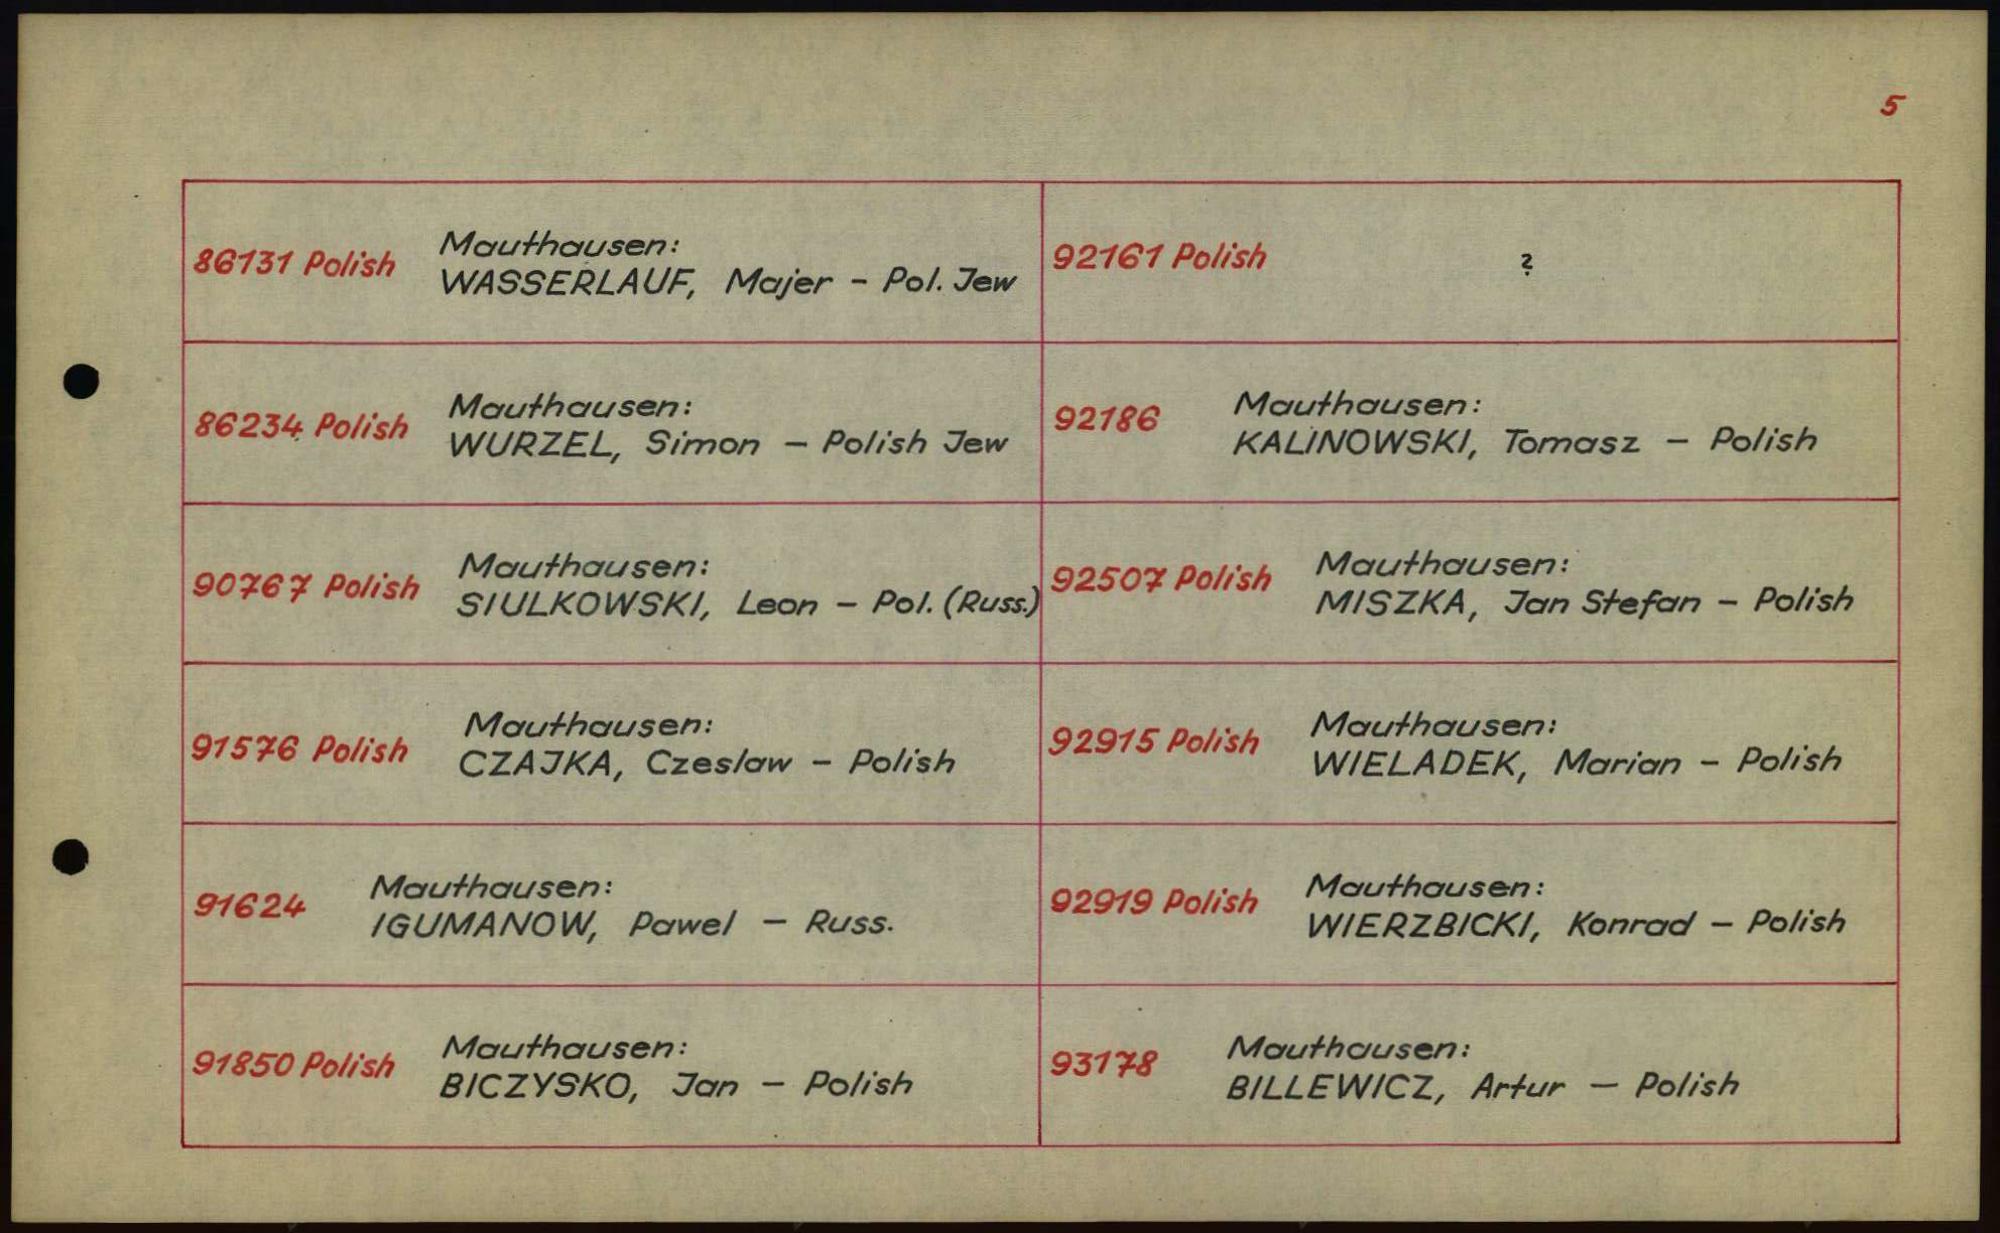 5
86131 Polish
Mauthausen:
WASSERLAUF, Majer – Pol. Jew
92161 Polish
?
86234 Polish
Mauthausen:
WURZEL, Simon – Polish Jew
92186
Mauthausen:
KALINOWSKI, Tomasz – Polish
90767 Polish
Mauthausen:
SIULKOWSKI, Leon – Pol. (Russ.)
92507 Polish
Mauthausen:
MISZKA, Jan Stefan – Polish
91576 Polish
Mauthausen:
CZAJKA, Czeslaw – Polish
92915 Polish
Mauthausen:
WIELADEK, Marian – Polish
91624
Mauthausen:
IGUMANOW, Pawel – Russ.
92919 Polish
Mauthausen:
WIERZBICKI, Konrad – Polish
91850 Polish
Mauthausen:
BICZYSKO, Jan – Polish
93178
Mauthausen:
BILLEWICZ, Artur – Polish